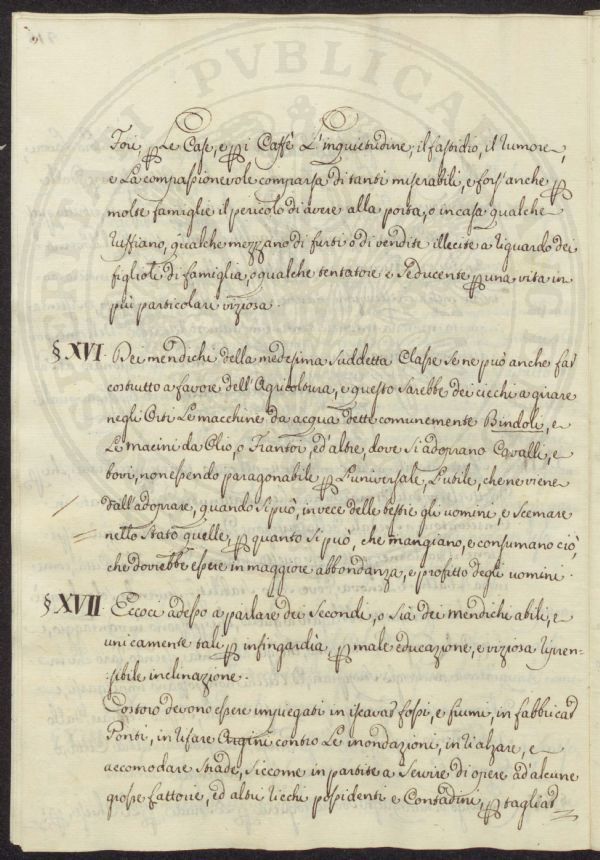 Fori, per Le Case, e per i Caffè L'inquietudine, il fastidio, il rumore,
e La compassionevole comparsa di tanti miserabili, e fors'anche per
molte famiglie il pericolo di avere alla porta, o in casa qualche
Ruffiano, qualche mezzano di furti o di vendite illecite a riguardo dei
figlioli di famiglia, o qualche tentatore e seducente per una vita in
più particolare viziosa.
§ XVI. Dei mendichi della medesima suddetta Classe se ne può anche far
costrutto a favore dell'Agricoltura, e questo sarebbe dei ciechi a girare
negli Orti Le macchine da acqua dette comunemente Bindoli, e
Le macini da Olio, o Frantoi, ed'altre, dove si adoprano Cavalli, e
bovi, non essendo paragonabile per L'universale, L'utile, che ne viene
dall'adoprare, quando si può, in vece delle bestie gli uomini, e scemare
nello Stato quelle, per quanto si può, che mangiano, e consumano ciò,
che dovrebbe essere in maggiore abbondanza, e profitto degli uomini.
§ XVII Eccoci adesso a parlare dei secondi, o sia dei mendichi abili, e
unicamente tali per infingardia, per male educazione, e viziosa ripren-
sibile inclinazione.
Costoro devono essere impiegati in iscavar fossi, e fiumi, in fabbricar
Ponti, in rifare Argini contro Le inondazioni, in rialzare, e
accomodare strade, siccome in partite a servire di opere ad'alcune
grosse fattorie, ed altri ricchi possidenti e Contadini, per tagliar